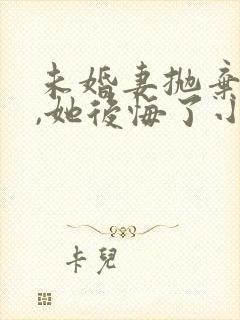 未婚妻拋棄
,她後悔了小
卡兒